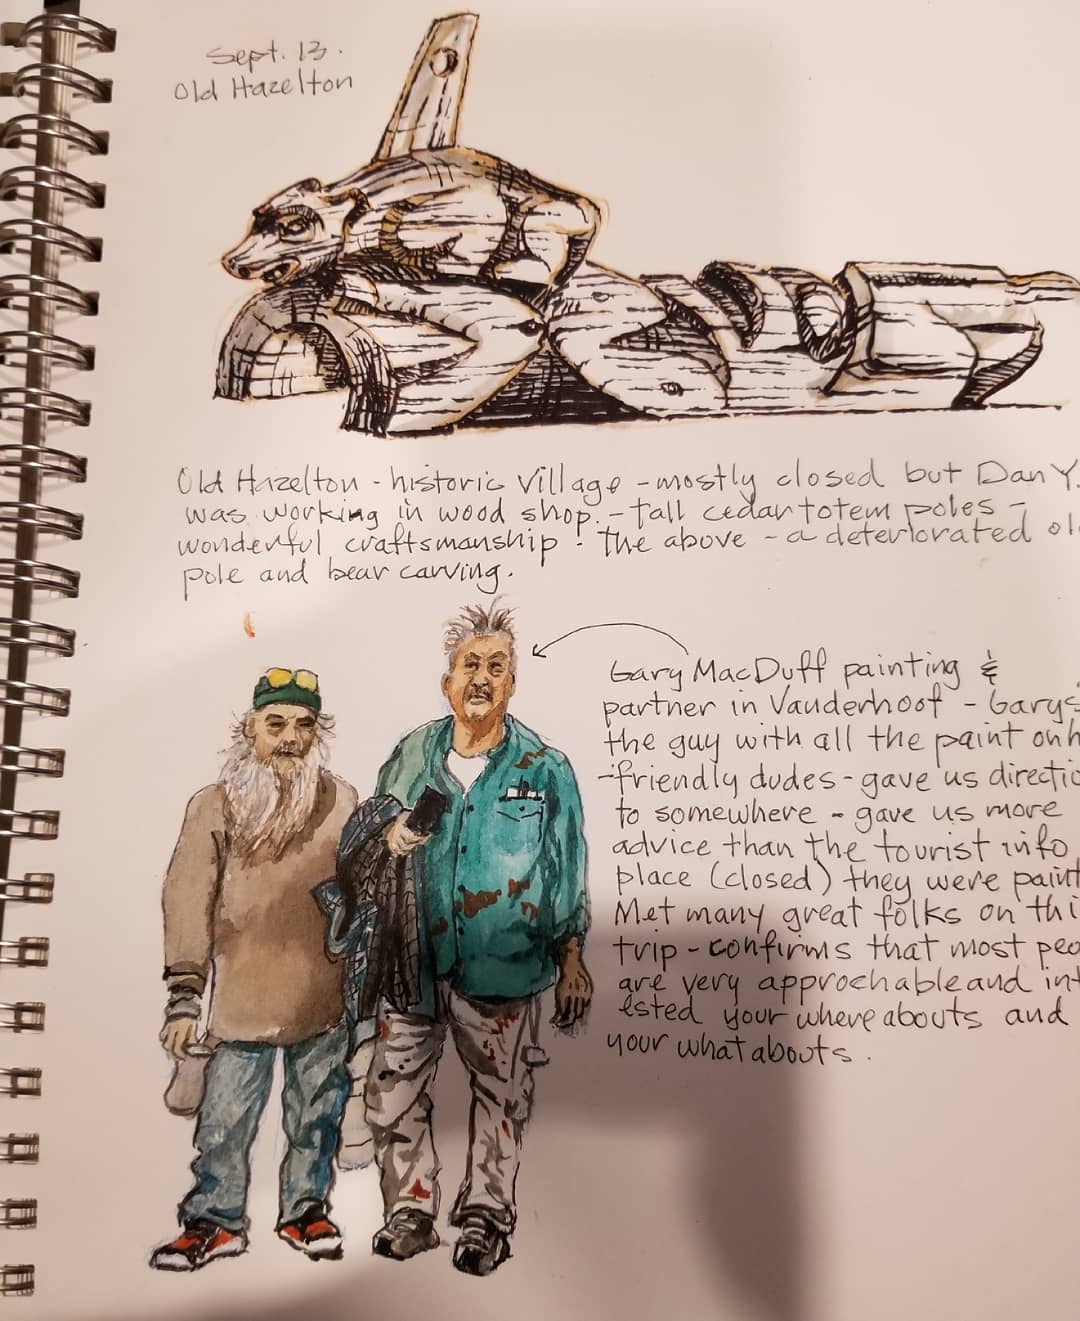 Sept. 13.
Old Hazelton
Old Hazelton - historic village - mostly closed but Dan Y.
was working in wood shop. - tall cedar totem poles -
wonderful craftsmanship! The above - a deteriorated ol
pole and bear carving.
Gary MacDuff painting &
partner in Vanderhoof - Garys
the guy with all the paint on h
- friendly dudes - gave us directio
to somewhere - gave us more
advice than the tourist info
place (closed) they were paint
Met many great folks on thi
trip - confirms that most peo
are very approchable and int
ested your where abouts and
your what abouts.